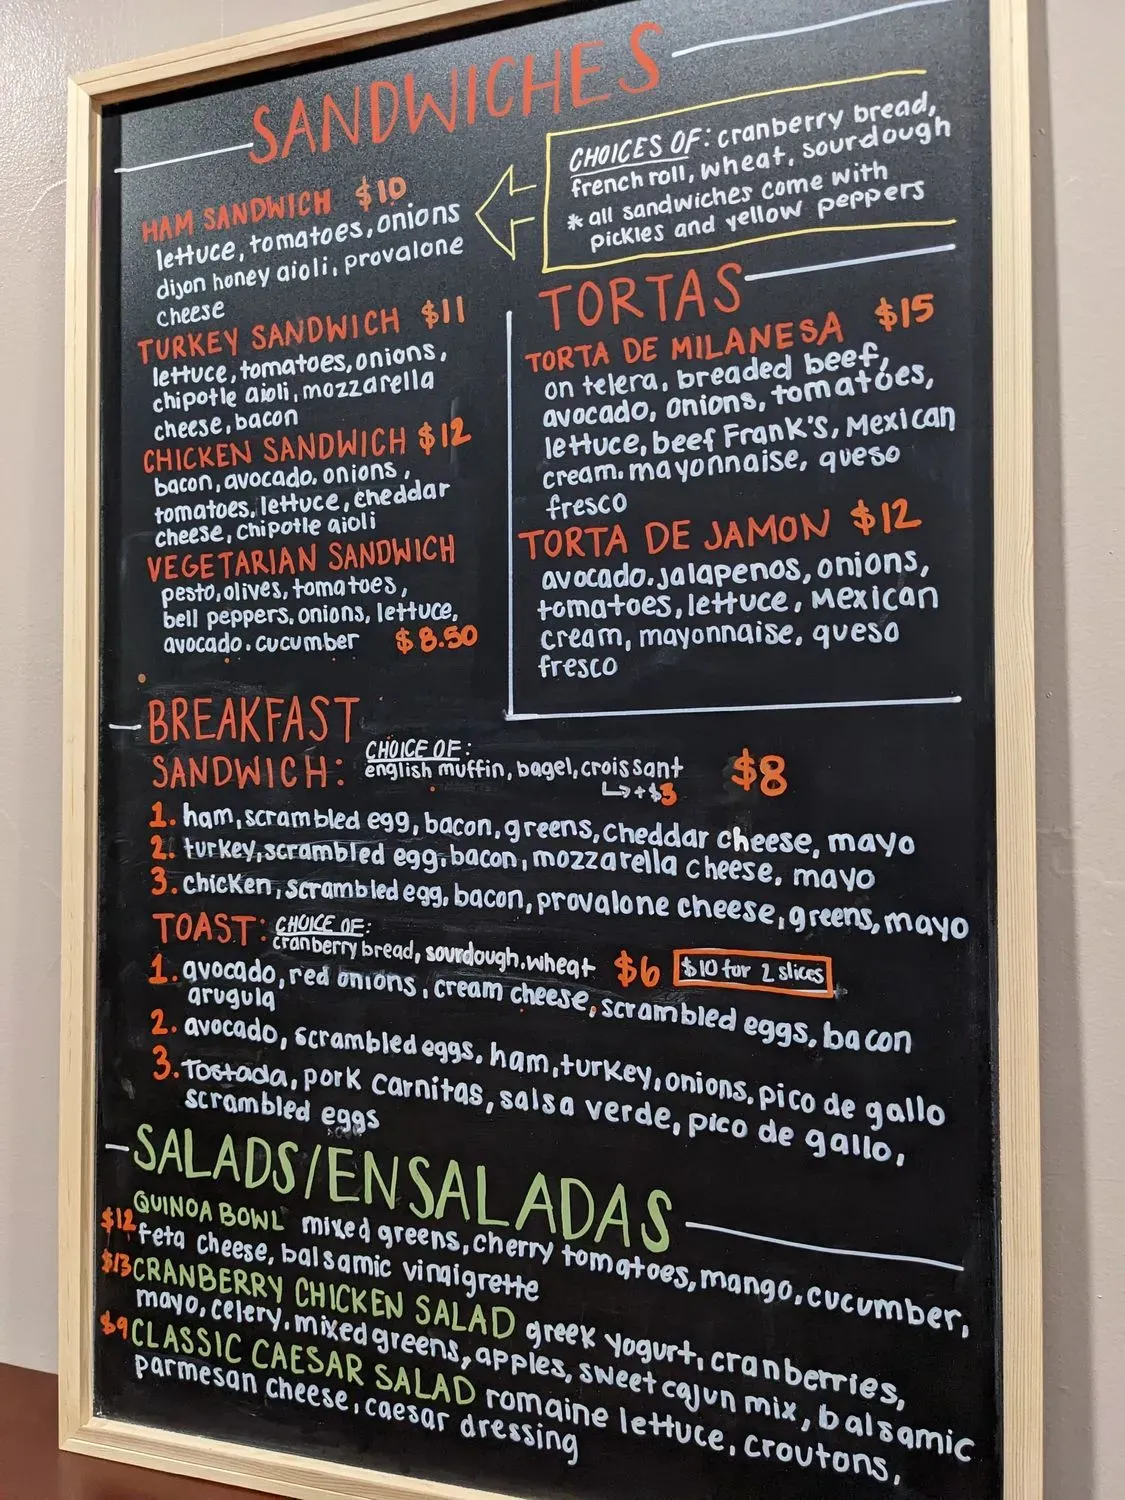 SANDWICHES
CHOICES OF: cranberry bread,
french roll, wheat, sourdough
* all sandwiches come with
pickles and yellow peppers
HAM SANDWICH $10
lettuce, tomatoes, onions
dijon honey aioli, provalone
cheese
TURKEY SANDWICH $11
lettuce, tomatoes, onions,
chipotle aioli, mozzarella
cheese, bacon
CHICKEN SANDWICH $12
bacon, avocado, onions,
tomatoes, lettuce, cheddar
cheese, chipotle aioli
VEGETARIAN SANDWICH
pesto, olives, tomatoes,
bell peppers, onions, lettuce,
avocado, cucumber $8.50
TORTAS
TORTA DE MILANESA $15
on telera, breaded beef,
avocado, onions, tomatoes,
lettuce, beef Frank's, Mexican
cream, mayonnaise, queso
fresco
TORTA DE JAMON $12
avocado, jalapenos, onions,
tomatoes, lettuce, Mexican
cream, mayonnaise, queso
fresco
BREAKFAST
SANDWICH: CHOICE OF:
english muffin, bagel, croissant $8
+$3
1. ham, scrambled egg, bacon, greens, cheddar cheese, mayo
2. turkey, scrambled egg, bacon, mozzarella cheese, mayo
3. chicken, scrambled egg, bacon, provalone cheese, greens, mayo
TOAST: CHOICE OF:
cranberry bread, sourdough, wheat $6 $10 for 2 slices
1. avocado, red onions, cream cheese, scrambled eggs, bacon
arugula
2. avocado, scrambled eggs, ham, turkey, onions, pico de gallo
3. Tostada, pork carnitas, salsa verde, pico de gallo,
scrambled eggs
SALADS/ENSALADAS
$12 QUINOA BOWL mixed greens, cherry tomatoes, mango, cucumber,
feta cheese, balsamic vinaigrette
$13 CRANBERRY CHICKEN SALAD greek yogurt, cranberries,
mayo, celery, mixed greens, apples, sweet cajun mix, balsamic
$9 CLASSIC CAESAR SALAD romaine lettuce, croutons,
parmesan cheese, caesar dressing